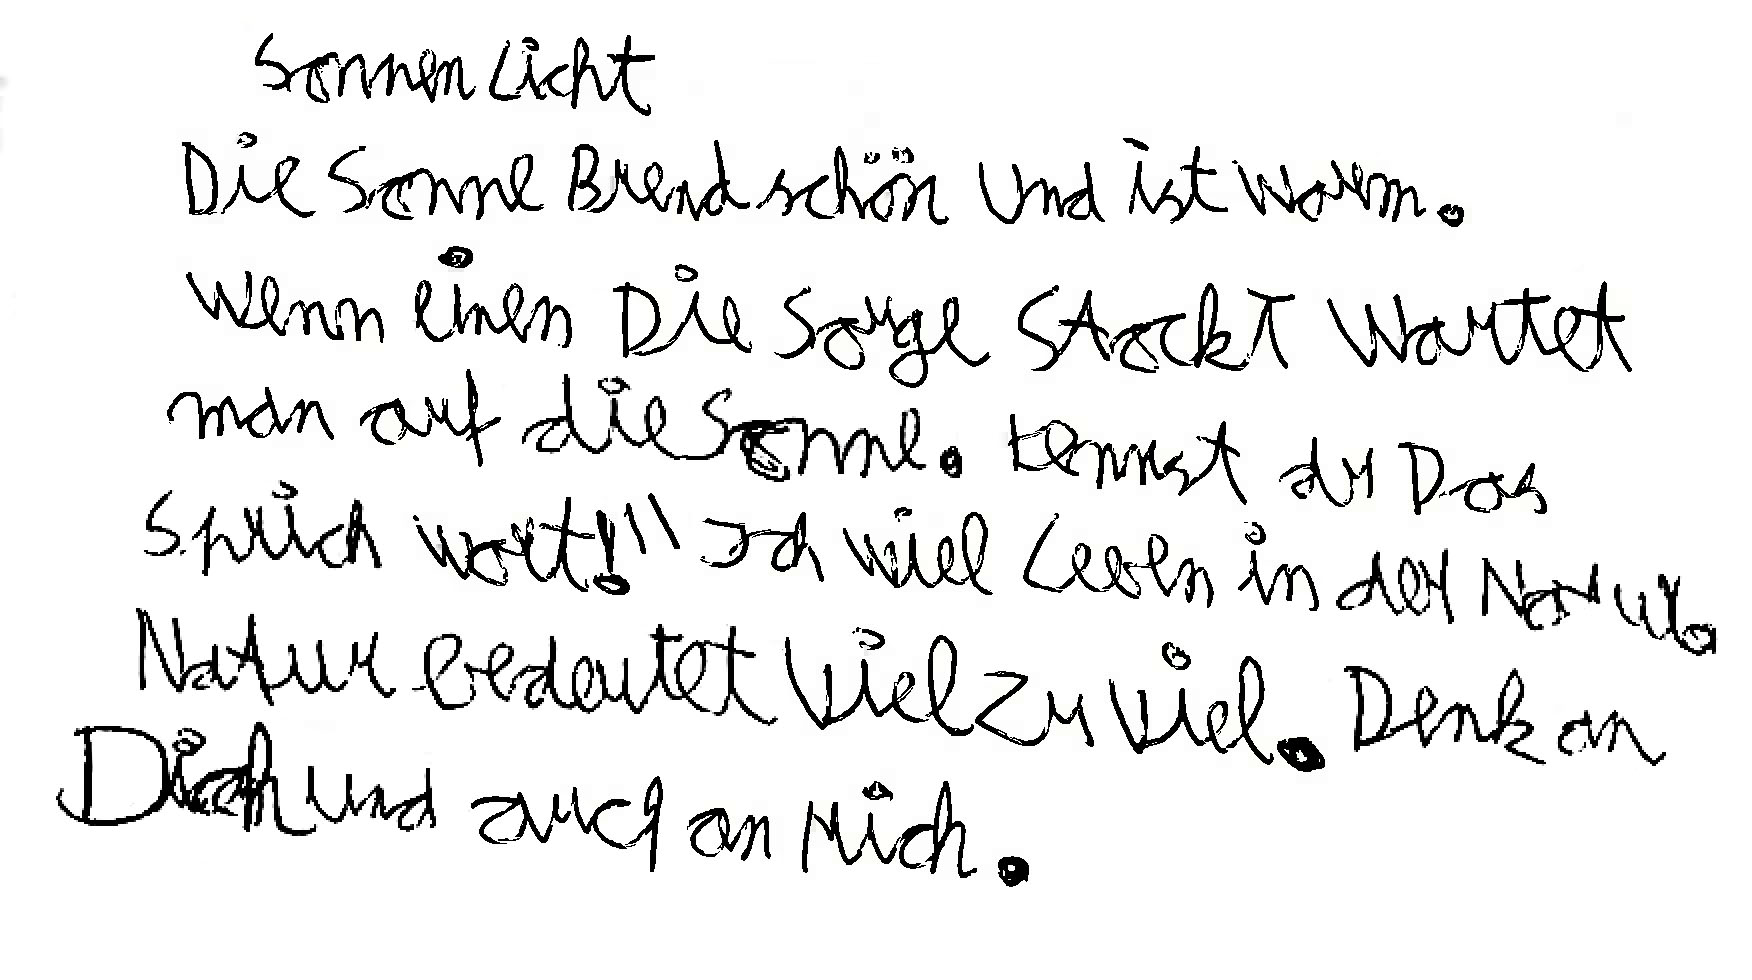 Sonnen Licht
Die Sonne Brend schön und ist Warm.
Wenn einen Die Sorge Stockt Wartet
man auf die Sonne. kennst du Das
Sprich wort!" Ich wiel Leben in der Natur.
Natur bedeutet Viel zu Viel. Denk an
Dich und auch an Mich.